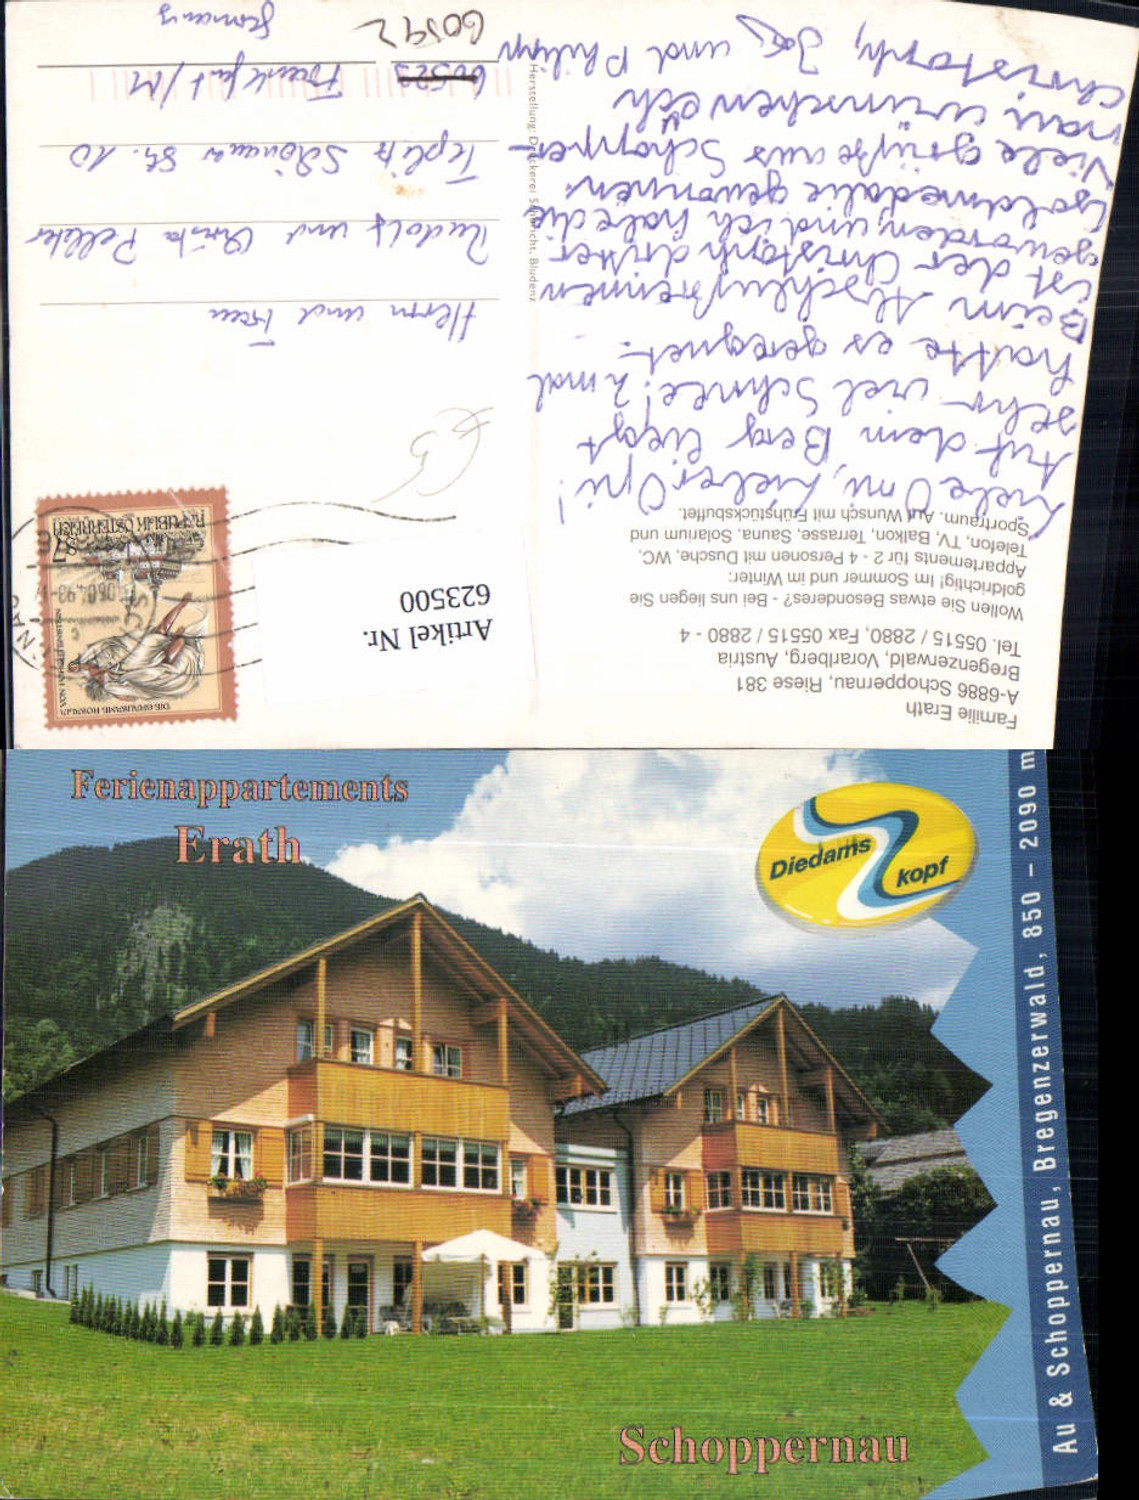 Familie Erath
A-6886 Schoppernau, Riese 381
Bregenzerwald, Vorarlberg, Austria
Tel. 05515 / 2880, Fax 05515 / 2880 - 4
Wollen Sie etwas Besonderes? - Bei uns liegen Sie
goldrichtig! Im Sommer und im Winter:
Appartements für 2 - 4 Personen mit Dusche, WC,
Telefon, TV, Balkon, Terrasse, Sauna, Solarium und
Sportraum. Auf Wunsch mit Frühstücksbuffet.
Liebe Omi, Lieber Opi!
Auf dem Berg liegt
sehr viel Schnee! 2 mal
hatte es geregnet.
Beim Abschlußrennen
ist der Christoph dritter
geworden, und ich habe die
Goldmedalie gewonnen.
Viele grüße aus Schopper-
nau wünschen euch
Christoph, und Philipp
Herstellung: Druckerei Bludenz
Artikel Nr.
623500
REPUBLIK ÖSTERREICH
S7
Herrn und Frau
Rudolf und Christa
Teplitz Schönauer Str. 10
Frankfurt/M
60592
Germany
Ferienappartements
Erath
Diedams
kopf
Schoppernau
Au & Schoppernau, Bregenzerwald, 850 – 2090 m